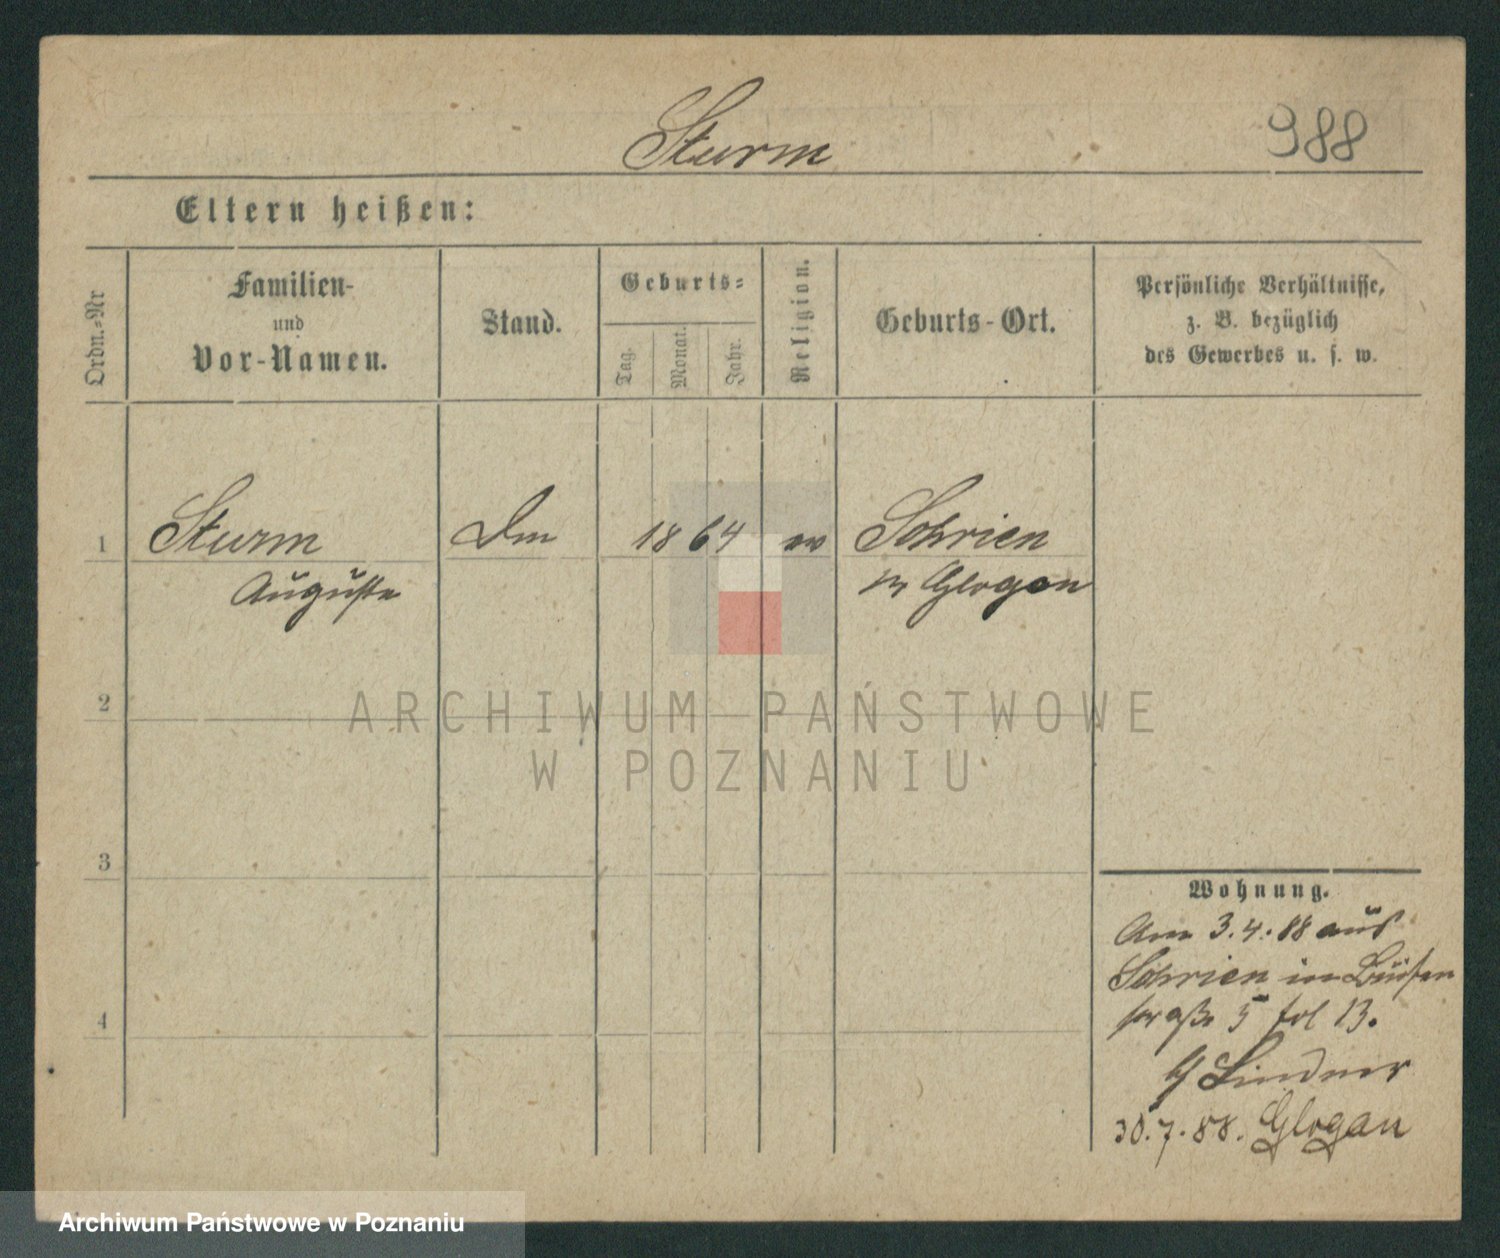 Sturm
988
Eltern heißen:
Ordn.-Nr
Familien-
und
Vor-Namen.
Stand.
Geburts-
Tag.
Monat.
Jahr.
Religion.
Geburts-Ort.
Persönliche Verhältnisse,
z. B. bezüglich
des Gewerbes u. s. w.
1
Sturm
Auguste
1864
ev
Schrien
Glogau
2
ARCHIWUM PAŃSTWOWE
W POZNANIU
3
4
Wohnung.
Am 3.4.88 aus
Schrien in
straße 5 13.
b/ Lindner
30.7.88. Glogau
Archiwum Państwowe w Poznaniu